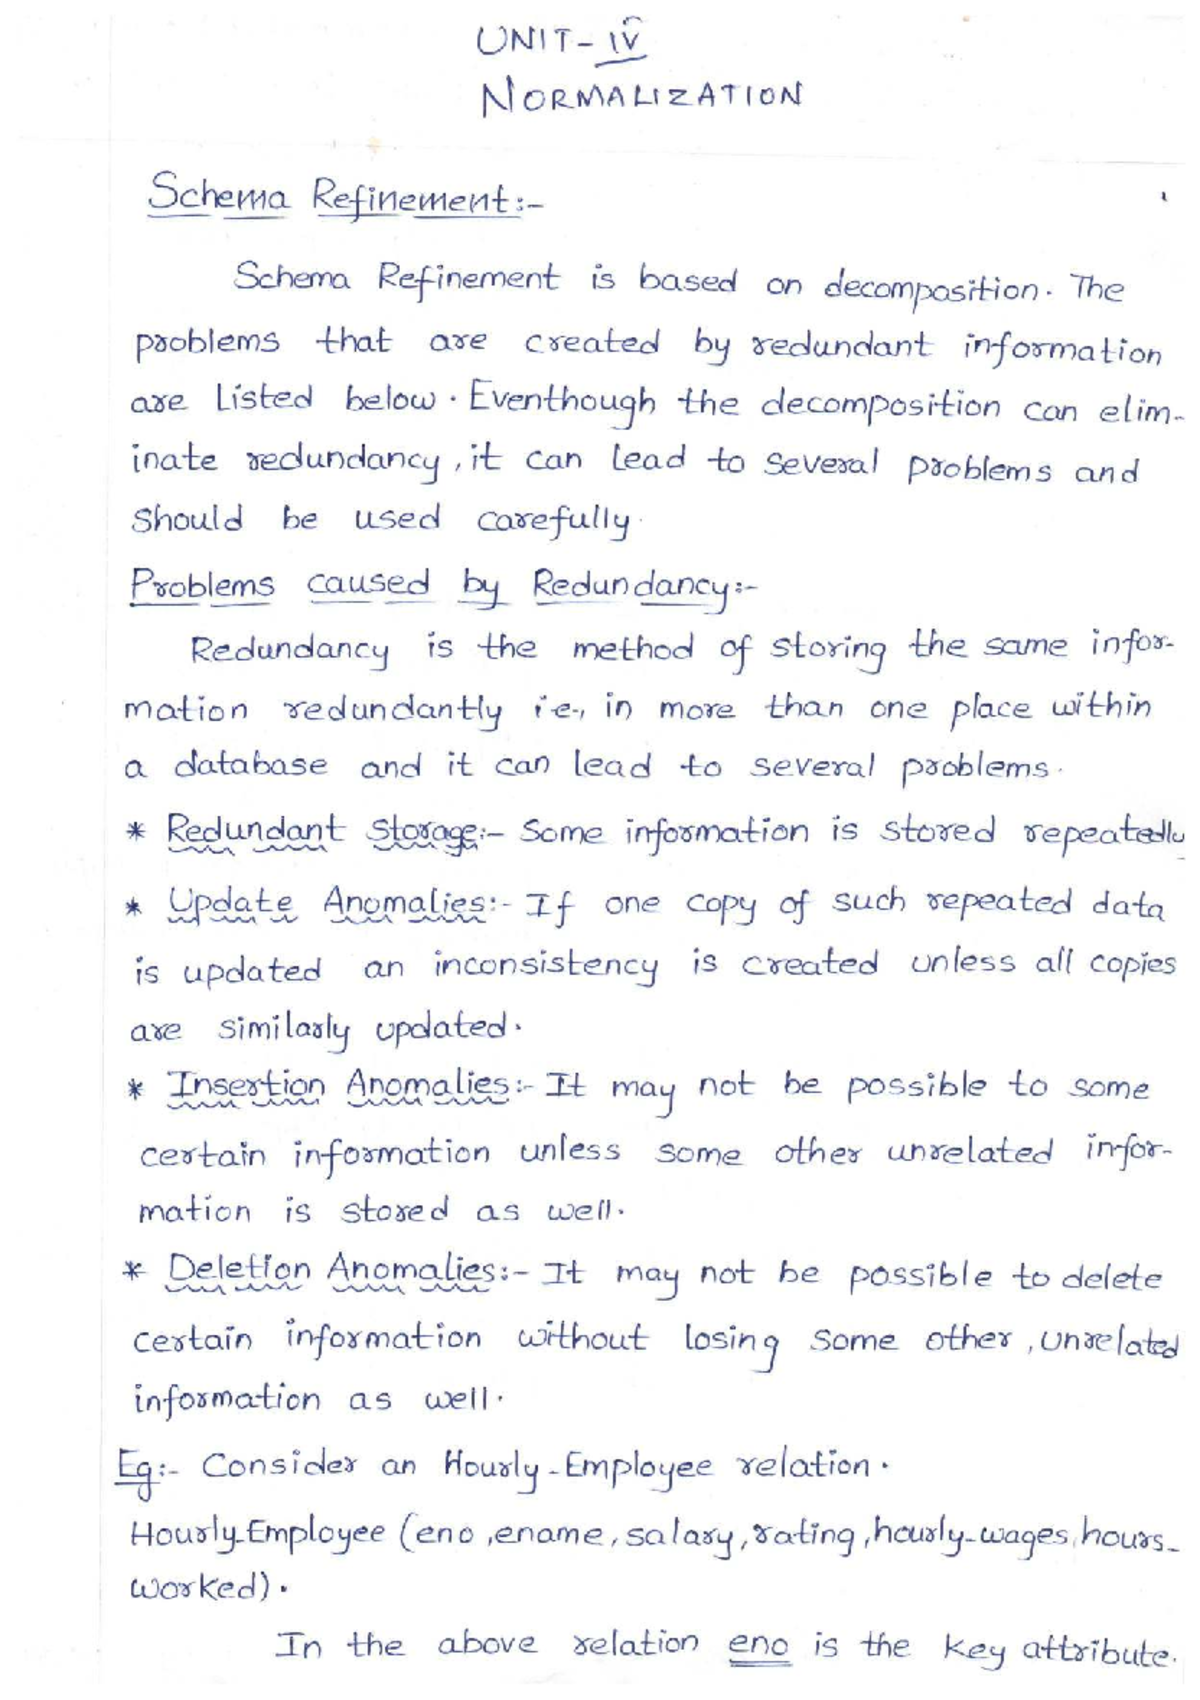 UNIT-IV
NORMALIZATION
Schema Refinement:-
Schema Refinement is based on decomposition. The
problems that are created by redundant information
are Listed below. Eventhough the decomposition can elim-
inate redundancy, it can lead to several problems and
should be used carefully.
Problems caused by Redundancy:-
Redundancy is the method of storing the same infor-
mation redundantly i.e., in more than one place within
a database and it can lead to several problems.
* Redundant Storage:- Some information is stored repeatedly
* Update Anomalies:- If one copy of such repeated data
is updated an inconsistency is created unless all copies
are similarly updated.
* Insertion Anomalies:- It may not be possible to some
certain information unless some other unrelated infor-
mation is stored as well.
* Deletion Anomalies:- It may not be possible to delete
certain information without losing some other, unrelated
information as well.
Eg:- Consider an Hourly-Employee relation.
Hourly-Employee (eno, ename, salary, rating, hourly-wages, hours-
worked).
In the above relation eno is the key attribute.